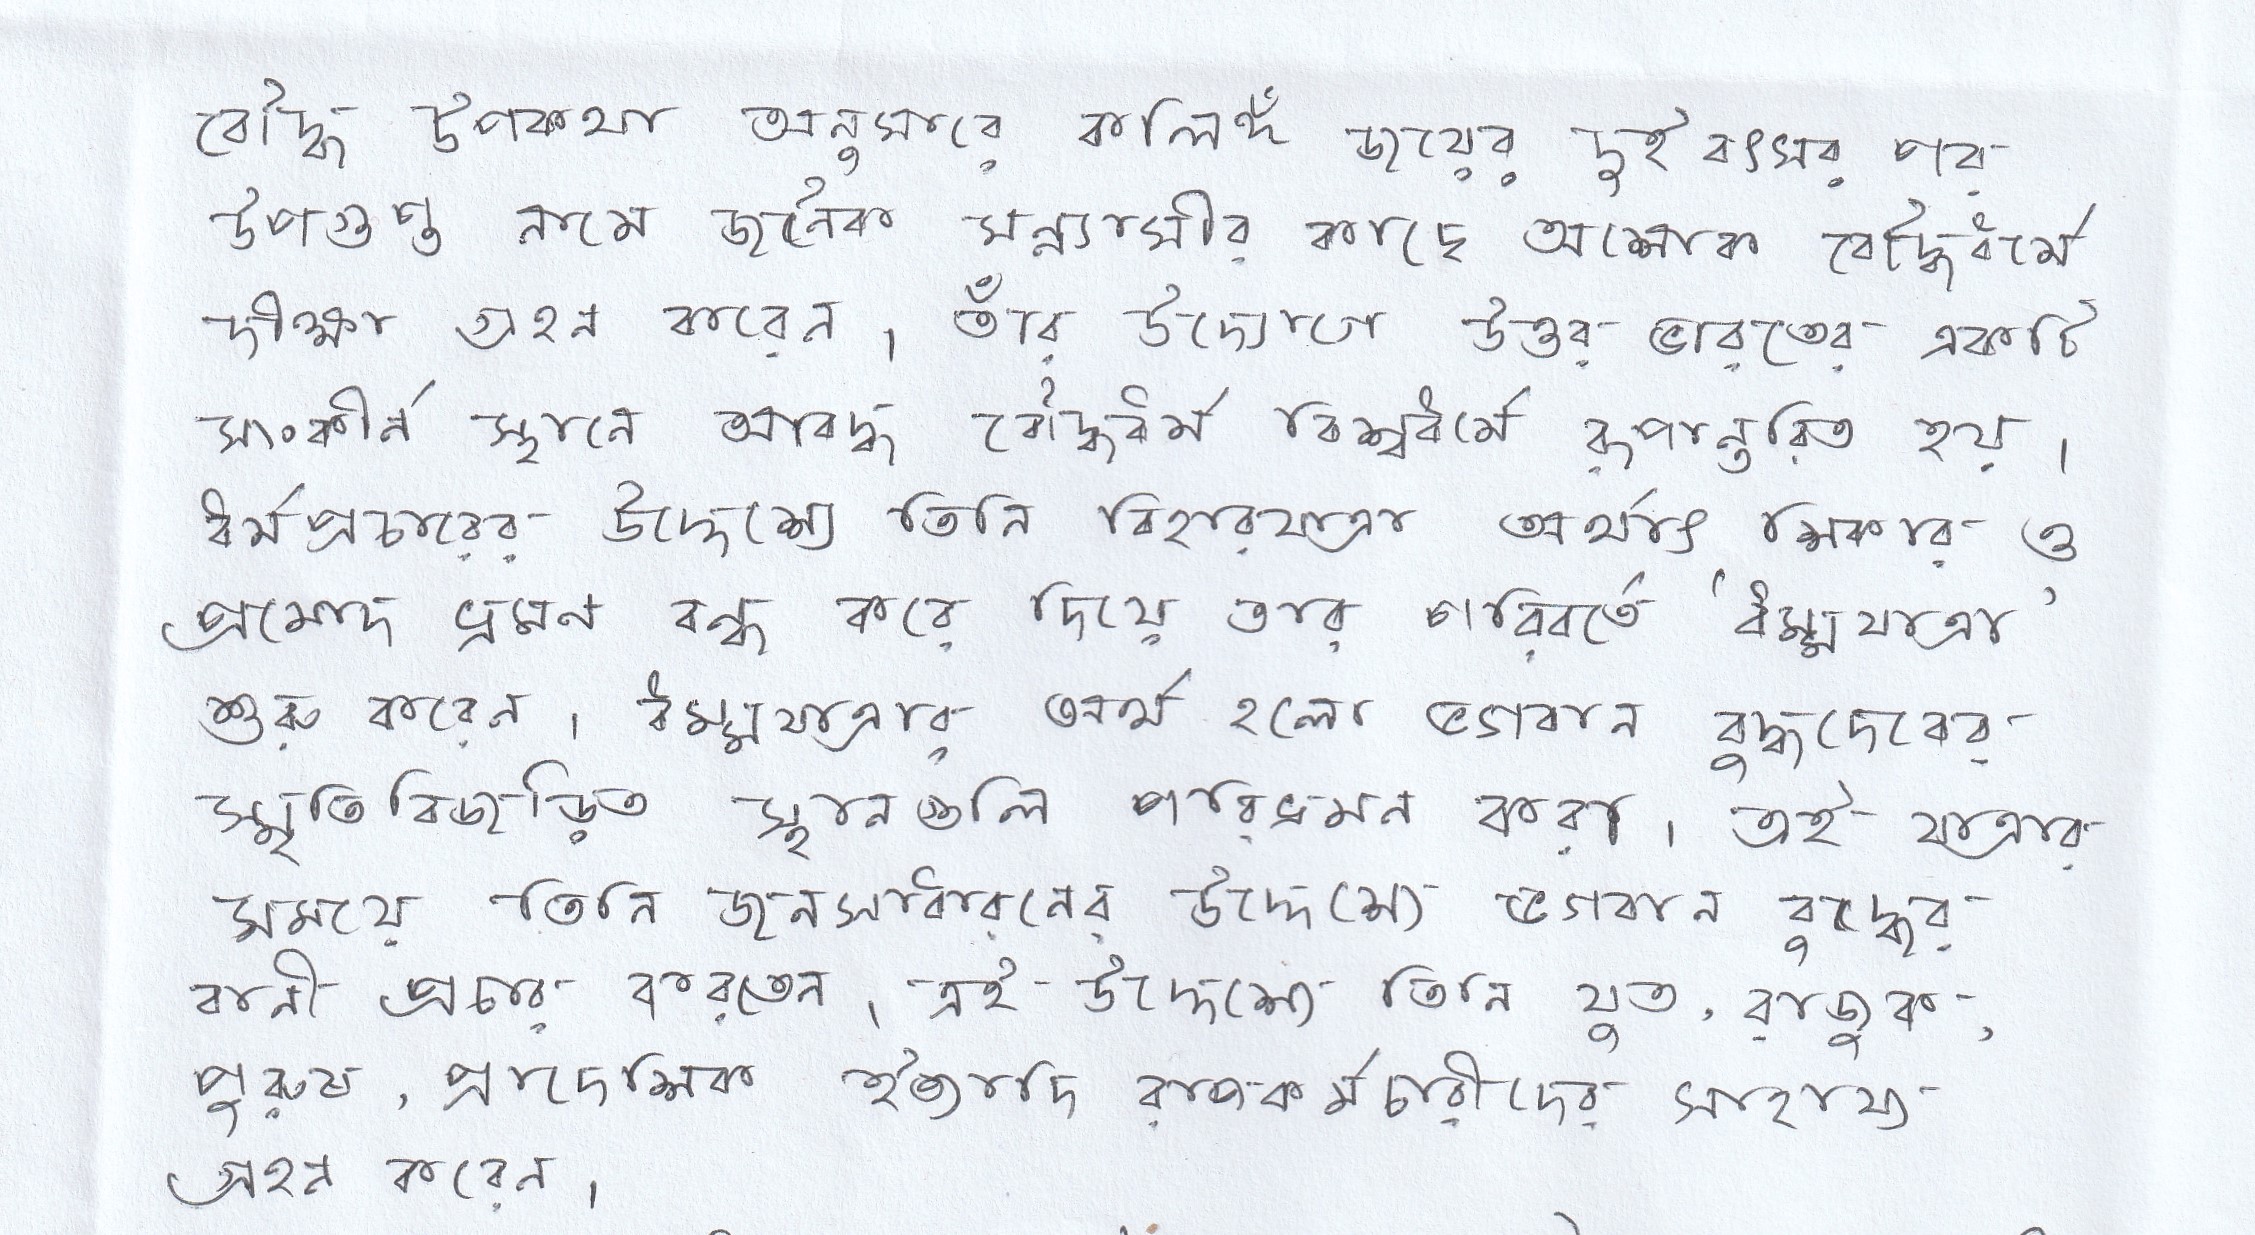 বৌদ্ধ উপকথা অনুসারে কলিঙ্গ জয়ের দুই বৎসর পর
উপগুপ্ত নামে জনৈক সন্ন্যাসীর কাছে অশোক বৌদ্ধধর্মে
দীক্ষা গ্রহন করেন। তাঁর উদ্যোগে উত্তর ভারতের একটি
সংকীর্ন স্থানে আবদ্ধ বৌদ্ধধর্ম বিশ্বধর্মে রূপান্তরিত হয়।
ধর্মপ্রচারের উদ্দেশ্যে তিনি বিহারযাত্রা অর্থাৎ শিকার ও
প্রমোদ ভ্রমন বন্ধ করে দিয়ে তার পরিবর্তে 'ধম্মযাত্রা'
শুরু করেন। ধম্মযাত্রার অর্থ হলো ভগবান বুদ্ধদেবের
স্মৃতিবিজড়িত স্থানগুলি পরিভ্রমন করা। এই যাত্রার
সময়ে তিনি জনসাধারনের উদ্দেশ্যে ভগবান বুদ্ধের
বানী প্রচার করতেন। এই উদ্দেশ্যে তিনি যুত, রাজুক,
পুরুষ, প্রাদেশিক ইত্যাদি রাজকর্মচারীদের সাহায্য
গ্রহন করেন।